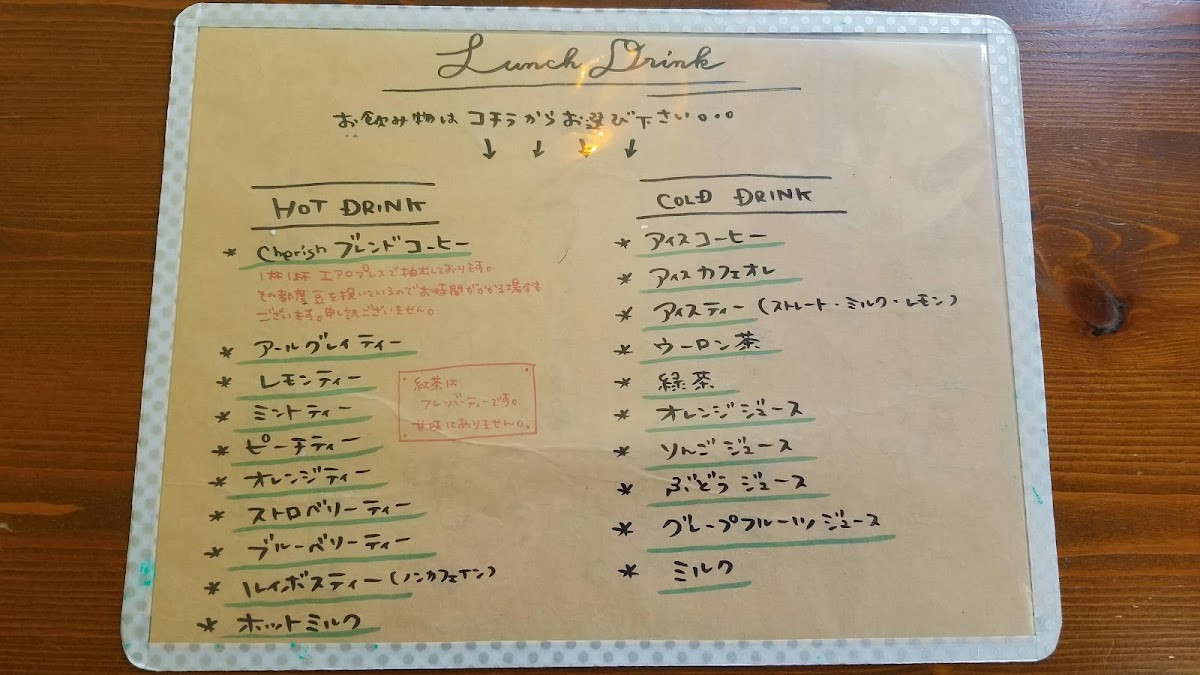 Lunch Drink
お飲み物は コチラからお選び下さい。。。
↓ ↓ ↓ ↓
HOT DRINK
* Cherish ブレンドコーヒー
1杯1杯 エアロプレスで抽出しております。
その都度豆を挽いているのでお時間がかかる場合も
ございます。申し訳ございません。
* アールグレイティー
* レモンティー
* ミントティー
* ピーチティー
* オレンジティー
* ストロベリーティー
* ブルーベリーティー
* ルイボスティー (ノンカフェイン)
* ホットミルク
紅茶は
フレーバーティーです。
甘味はありません。
COLD DRINK
* アイスコーヒー
* アイスカフェオレ
* アイスティー (ストレート・ミルク・レモン)
* ウーロン茶
* 緑茶
* オレンジジュース
* りんごジュース
* ぶどうジュース
* グレープフルーツジュース
* ミルク